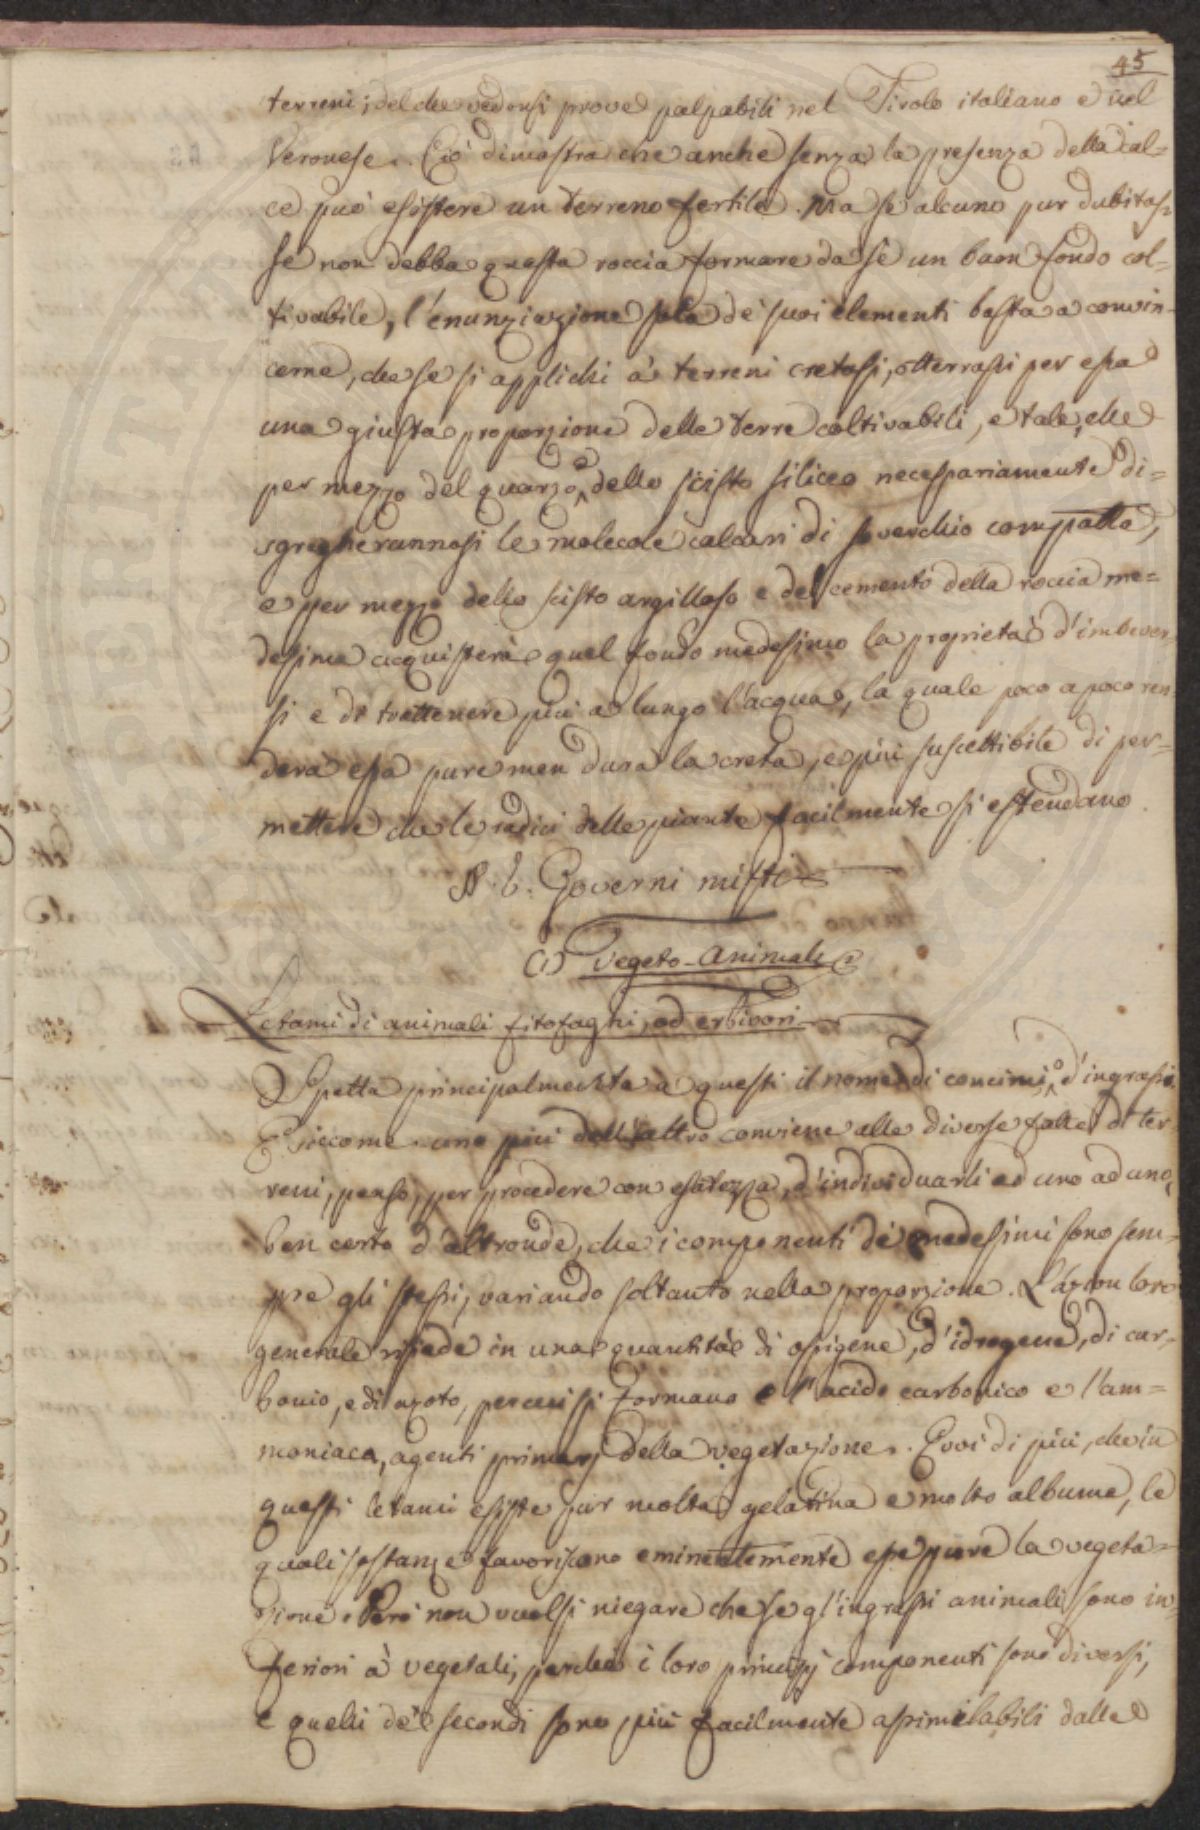 45
terreni; del che vedonsi prove palpabili nel Tirolo italiano e nel
Veronese. Ciò dimostra che anche senza la presenza della cal=
ce può esistere un terreno fertile. Ma se alcuno pur dubitas=
se non debba questa roccia formare da sè un buon fondo col=
tivabile, l'enunziazione sola de' suoi elementi basta a convin=
cerne, che se si applichi à terreni cretosi, otterrassi per essa
una giusta proporzione delle terre coltivabili, e tale, che
per mezzo del quarzo, e dello scisto siliceo necessariamente di=
sgregherannosi le molecole calcari di soverchio compatte,
e per mezzo dello scisto argilloso e del cemento della roccia me=
desima acquisterà quel fondo medesimo la proprietà d'imbever=
si e di trattenere più a lungo l'acqua, la quale poco a poco ren=
derà essa pure men dura la creta, e più suscettibile di per=
mettere che le radici delle piante facilmente si estendano.
Governi misti
(1) Vegeto-animali
Letami di animali fitofaghi, od erbivori
Spetta principalmente a questi il nome di concimi, o d'ingrassi.
E siccome uno più dell'altro conviene alle diverse fatte di ter=
reni, penso, per procedere con esatezza, d'individuarli ad uno ad uno,
ben certo d'altronde, che i componenti de' medesimi sono sem=
pre gli stessi, variando soltanto nella proporzione. L'azion loro
generale risiede in una quantità di ossigene, d'idrogene, di car=
bonio, e di azoto, per cui si formano e l'acido carbonico e l'am=
moniaca, agenti primarj della vegetazione. Evvi di più, che in
questi letami esiste pur molta gelatina e molto albume, le
quali sostanze favoriscono eminentemente esse pure la vegeta=
zione. Però non vuolsi niegare che se gl'ingrassi animali sono in=
feriori à vegetali, perchè i loro principj componenti sono diversi,
e quelli de' secondi sono più facilmente assimilabili dalle